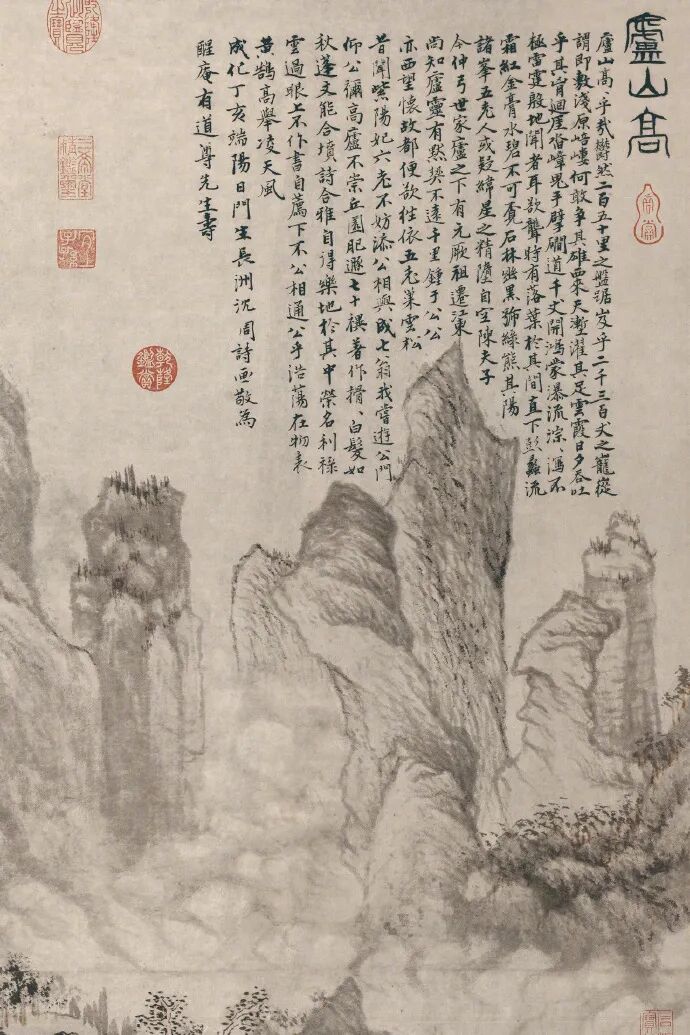 廬山高
廬山高〻乎哉鬱然二百五十里之盤踞岌乎二千三百丈之巃嵷
謂即敷淺原培塿何敢爭其雄西來天塹濯其足雲霞日夕吞吐
乎其胷迴崖沓嶂鬼手擘磵道千丈開鴻蒙瀑流淙〻瀉不
極雷霆殷地聞者耳欲聾時有落葉於其間直下彭蠡流
霜紅金膏水碧不可覔石林幽黑號綠熊其陽
諸峯五老人或疑緯星之精隳自空陳夫子
今仲弓世家廬之下有元厥祖遷江東
尚知廬靈有默契不遠千里鍾于公公
亦西望懷故都便欲往依五老巢雲松
昔聞紫陽妃六老不妨添公相與成七翁我嘗遊公門
仰公彌高廬不崇丘園肥遯七十禩著作搰〻白髮如
秋蓬文能合墳詩合雅自得樂地於其中榮名利祿
雲過眼上不作書自薦下不公相通公乎浩蕩在物表
黄鵠高舉凌天風
成化丁亥端陽日門生長洲沈周詩畫敬為
醒庵有道尊先生壽
三希堂精鑑璽
宜子孫
乾隆鑑賞